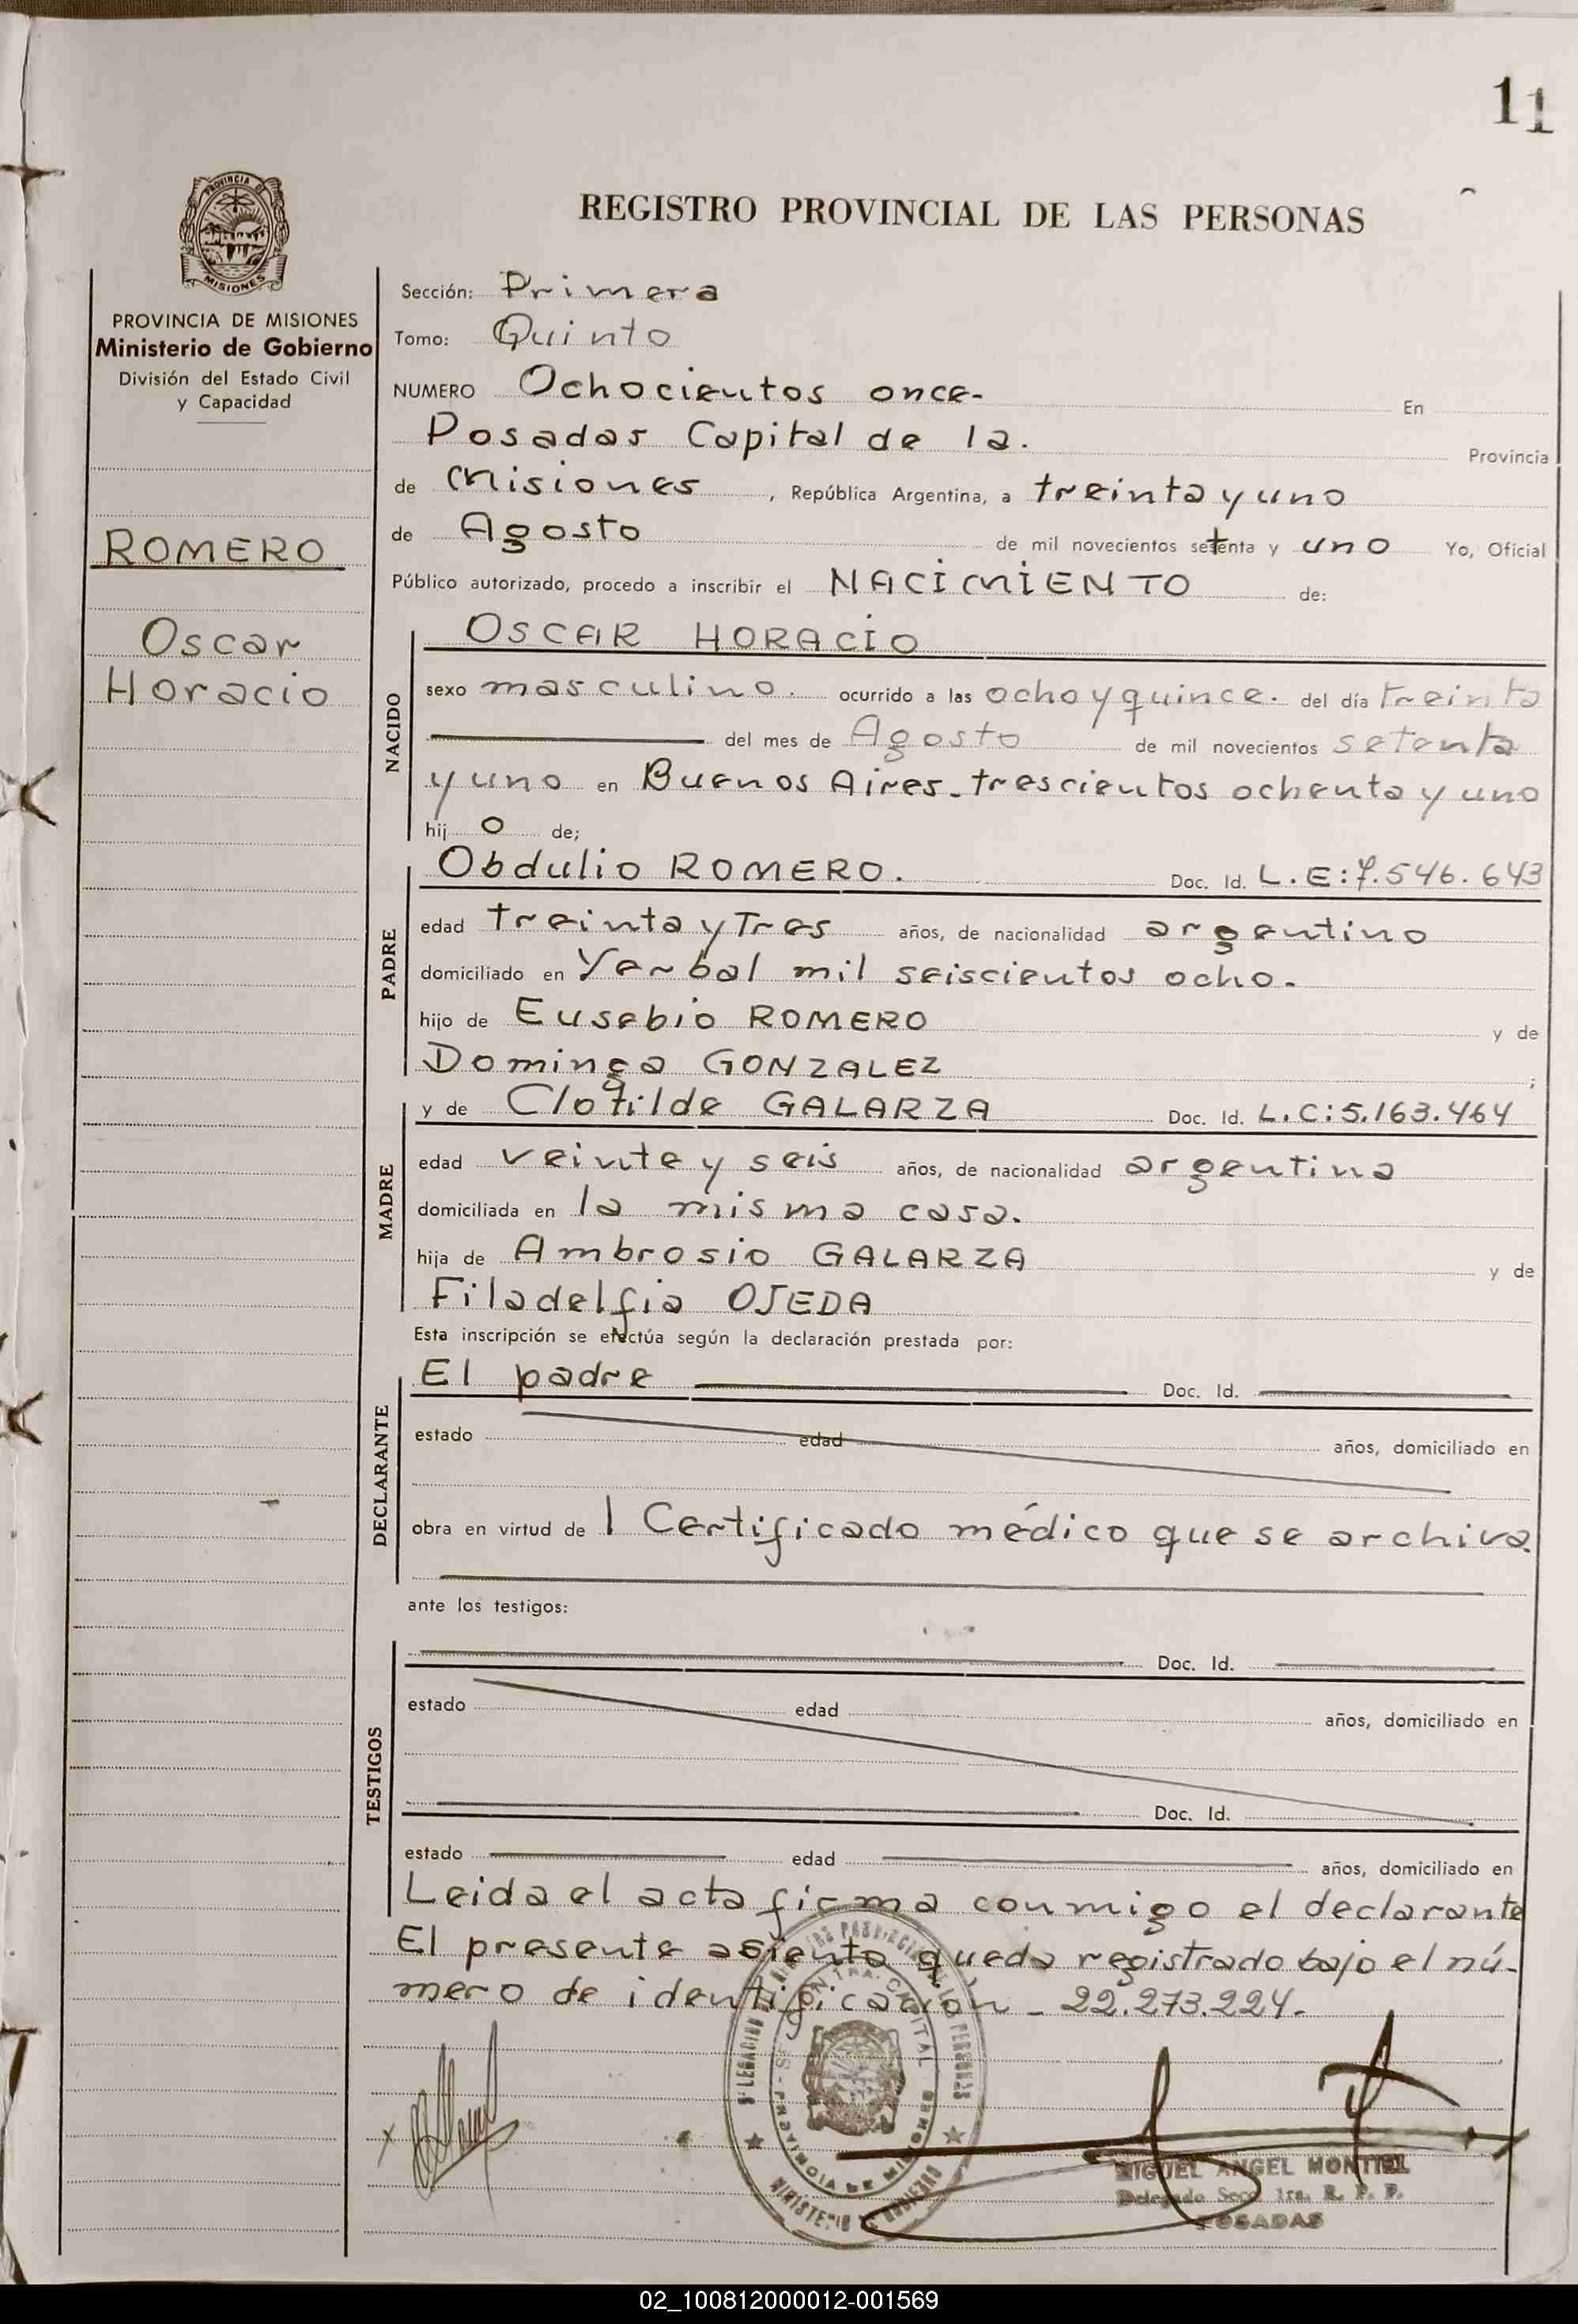 11
REGISTRO PROVINCIAL DE LAS PERSONAS
PROVINCIA DE
MISIONES
PROVINCIA DE MISIONES
Ministerio de Gobierno
División del Estado Civil
y Capacidad
ROMERO
Oscar
Horacio
Sección: Primera
Tomo: Quinto
NUMERO Ochocientos once- En
Posadas Capital de la. Provincia
de Misiones, República Argentina, a treinta y uno
de Agosto de mil novecientos setenta y uno Yo, Oficial
Público autorizado, procedo a inscribir el NACIMIENTO de:
NACIDO
OSCAR HORACIO
sexo masculino. ocurrido a las ocho y quince. del día treinta
del mes de Agosto de mil novecientos setenta
y uno en Buenos Aires-trescientos ochenta y uno
hij o de;
PADRE
Obdulio ROMERO. Doc. Id. L.E:7.546.643
edad treinta y Tres años, de nacionalidad argentino
domiciliado en Yerbal mil seiscientos ocho.
hijo de Eusebio ROMERO y de
Dominga GONZALEZ ;
MADRE
y de Clotilde GALARZA Doc. Id. L.C:5.163.464
edad veinte y seis años, de nacionalidad argentina
domiciliada en la misma casa.
hija de Ambrosio GALARZA y de
Filadelfia OJEDA
Esta inscripción se efectúa según la declaración prestada por:
DECLARANTE
El padre Doc. Id.
estado edad años, domiciliado en
obra en virtud de 1 Certificado médico que se archiva.
ante los testigos:
TESTIGOS
Doc. Id.
estado edad años, domiciliado en
Doc. Id.
estado edad años, domiciliado en
Leida el acta firma conmigo el declarante
El presente asiento queda registrado bajo el nú-
mero de identificación - 22.273.224.
PROVINCIA DE MISIONES
MINISTERIO DE GOBIERNO
MIGUEL ANGEL MONTIEL
Delegado Secc. 1ra. R. P. P.
POSADAS
02_100812000012-001569